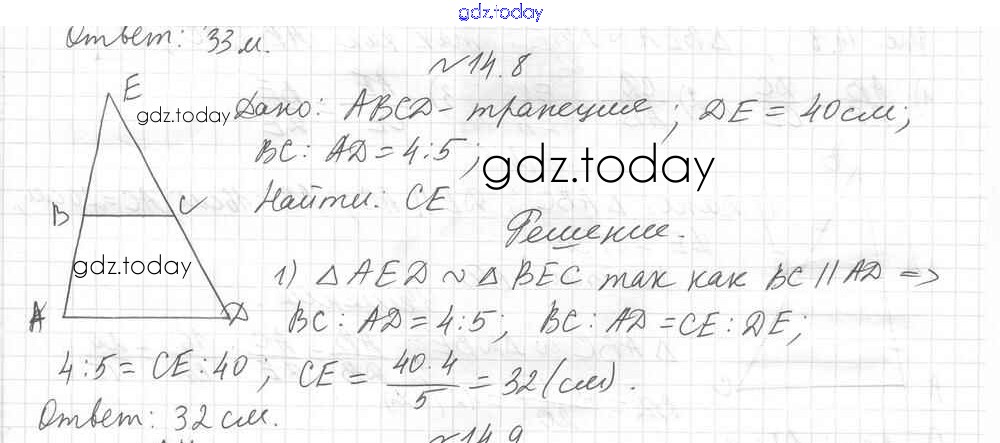 gdz.today
Ответ: 33 м.
№14.8
E
gdz.today
Дано: ABCD - трапеция; DE = 40 см;
BC : AD = 4:5;
gdz.today
B
C
Найти: CE
Решение.
gdz.today
1) △ AED ~ △ BEC так как BC || AD =>
A
D
BC : AD = 4:5; BC : AD = CE : DE;
4:5 = CE : 40; CE = 40·4/5 = 32 (см).
Ответ: 32 см.
№14.9